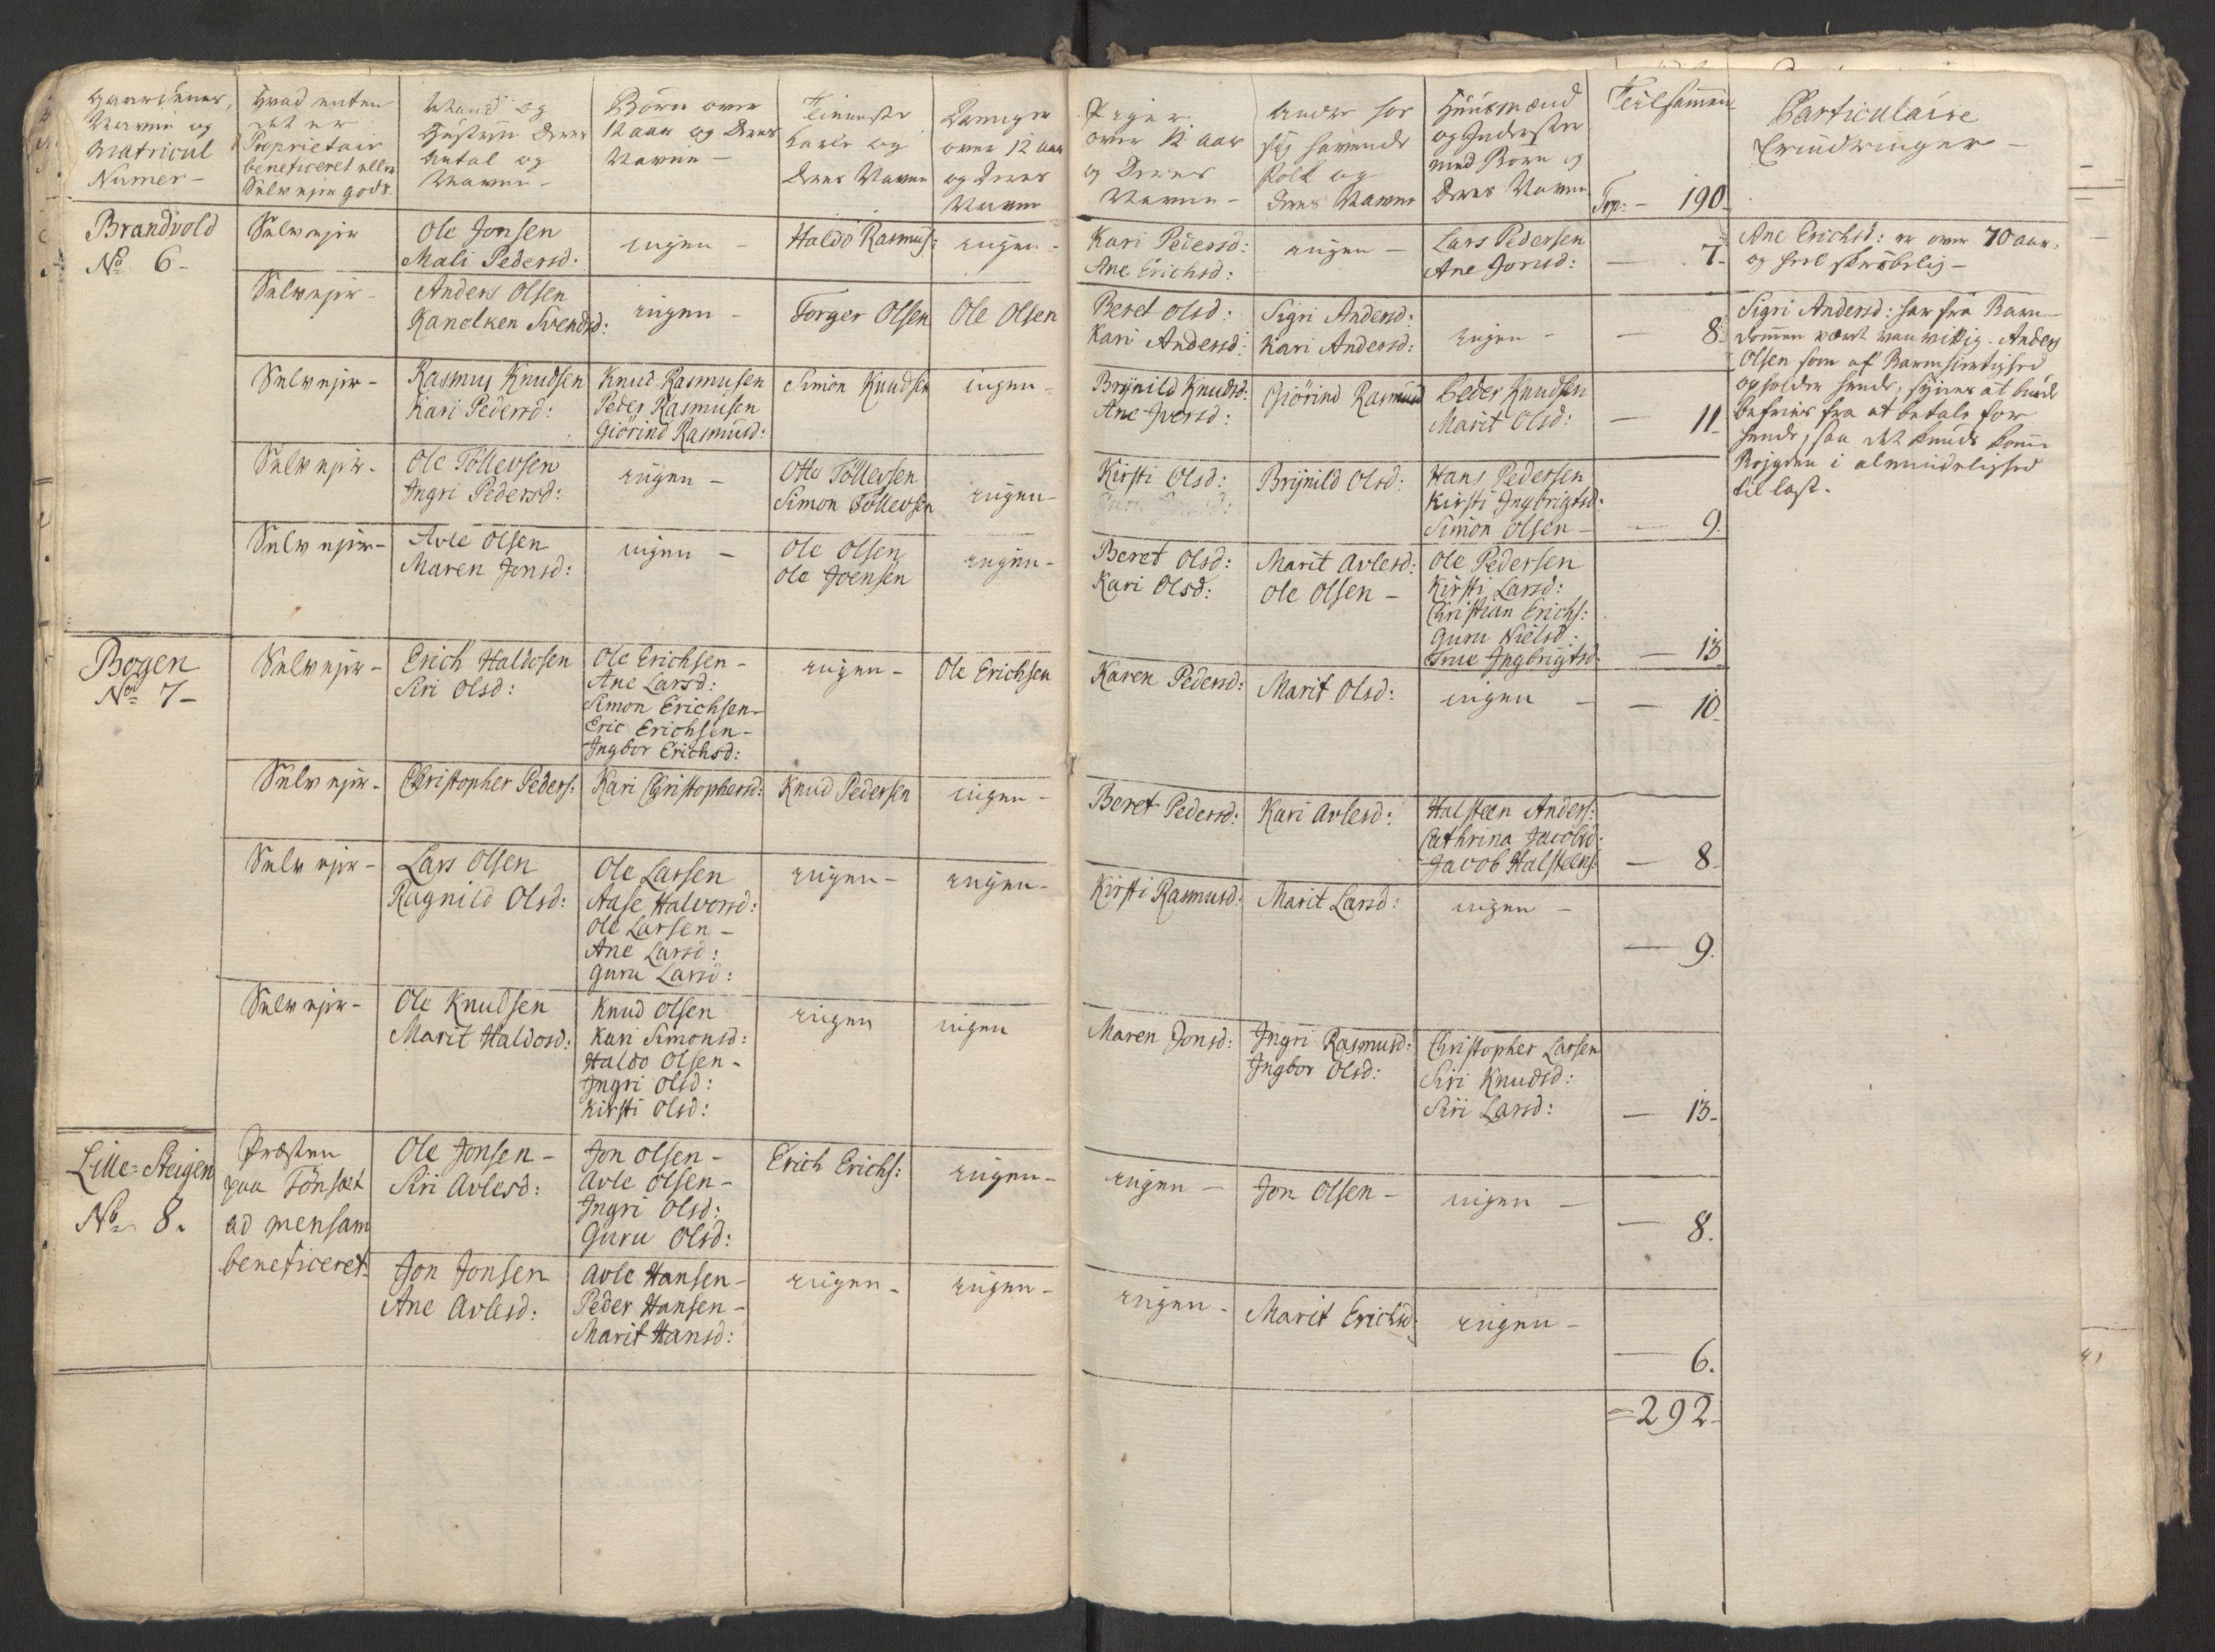 Gaardenes,
Navne og
Matricul
Numer -
Hvad enten
det er
Proprietair
beneficeret eller
Selv ejer gods
Mand og
Hustrue deres
Antal og
Navne -
Börn over
12 aar og deres
Navne -
Tienneste
Karle og
deres Navne
Drenger
over 12 aar
og deres
Navne
Piger
over 12 aar
og deres
Navne -
Andre hos
sig havende
folk og
deres Navne
Huusmænd
og Inderster
med Börn og
deres Navne
Teilsammen
Trp: - 190
Particulaire
Erindringer -
Brandvold
No 6 -
Selv ejer
Ole Jonsen
Mali Pedersd:
ingen -
Haldo Rasmus:
ingen -
Kari Pedersd:
Ane Erichsd:
ingen -
Lars Pedersen
Ane Jonsd:
- 7 -
Ane Erichsd: er over 70 aar,
og heel skröbelig -
Selv ejer -
Anders Olsen
Kanelken Svendsd:
ingen -
Torger Olsen
Ole Olsen
Beret Olsd:
Kari Andersd:
Sigri Andersd:
Kari Andersd:
ingen -
- 8 -
Sigri Andersd: har fra Barn-
dommen været vanvittig. Anders
Olsen som af Barmhiertighed
opholder hende, synes at burde
befries fra at betale for
hende, saa det kunde komme
Bøygden i almindelighed
til last.
Selv ejer -
Rasmus Knudsen
Kari Pedersd:
Knud Rasmusen
Peder Rasmusen
Giörind Rasmusd:
Simon Knudsen
ingen -
Brynild Knudsd:
Ane Iversd:
Giörind Rasmusd
Peder Knudsen
Marit Olsd:
- 11 -
Selv ejer -
Ole Töllevsen
Ingri Pedersd:
ingen -
Otte Töllevsen
Simon Töllevsen
ingen -
Kirsti Olsd:
Brynild Olsd:
Hans Pedersen
Kirsti Ingbrigtsd:
Simon Olsen -
- 9.
Selv ejer -
Avle Olsen
Maren Jonsd:
ingen -
Ole Olsen
Ole Joensen
ingen -
Beret Olsd:
Kari Olsd:
Marit Avlesd:
Ole Olsen -
Ole Pedersen
Kirsti Larsd:
Christian Erichs:
Guru Nielsd:
True Ingbrigtsd:
- 13
Bogen
No 7 -
Selv ejer -
Erich Haldosen
Siri Olsd:
Ole Erichsen -
Ane Larsd:
Simon Erichsen -
Eric Erichsen -
Ingbor Erichsd:
ingen -
Ole Erichsen
Karen Pedersd:
Marit Olsd:
ingen -
- 10 -
Selv ejer -
Christopher Peders:
Kari Christophersd:
Knud Pedersen
ingen -
Beret Pedersd:
Kari Avlesd:
Halsteen Anders:
Cathrina Jacobsd:
Jacob Halsteens:
- 8 -
Selv ejer -
Lars Olsen
Ragnild Olsd:
Ole Larsen
Aase Halvorsd:
Ole Larsen -
Ane Larsd:
Guru Larsd:
ingen -
ingen -
Kirsti Rasmusd:
Marit Larsd:
ingen -
- 9.
Selv ejer -
Ole Knudsen
Marit Haldosd:
Knud Olsen
Kari Simonsd:
Haldo Olsen -
Ingri Olsd:
Kirsti Olsd:
ingen
ingen
Maren Jonsd:
Ingri Rasmusd:
Ingbor Olsd:
Christopher Larsen
Siri Knudsd:
Siri Larsd:
- 13 -
Lille-Steigen
No 8.
Præsten
paa Tönset
ad mensam
beneficeret
Ole Jonsen -
Siri Avlesd:
Jon Olsen -
Avle Olsen -
Ingri Olsd:
Guru Olsd:
Erich Erichs:
ingen -
ingen -
Jon Olsen -
ingen -
- 8.
Jon Jonsen
Ane Avlesd:
Avle Hansen -
Peder Hansen -
Marit Hansd:
ingen -
ingen -
ingen -
Marit Erichsd
ingen -
- 6.
= 292 -